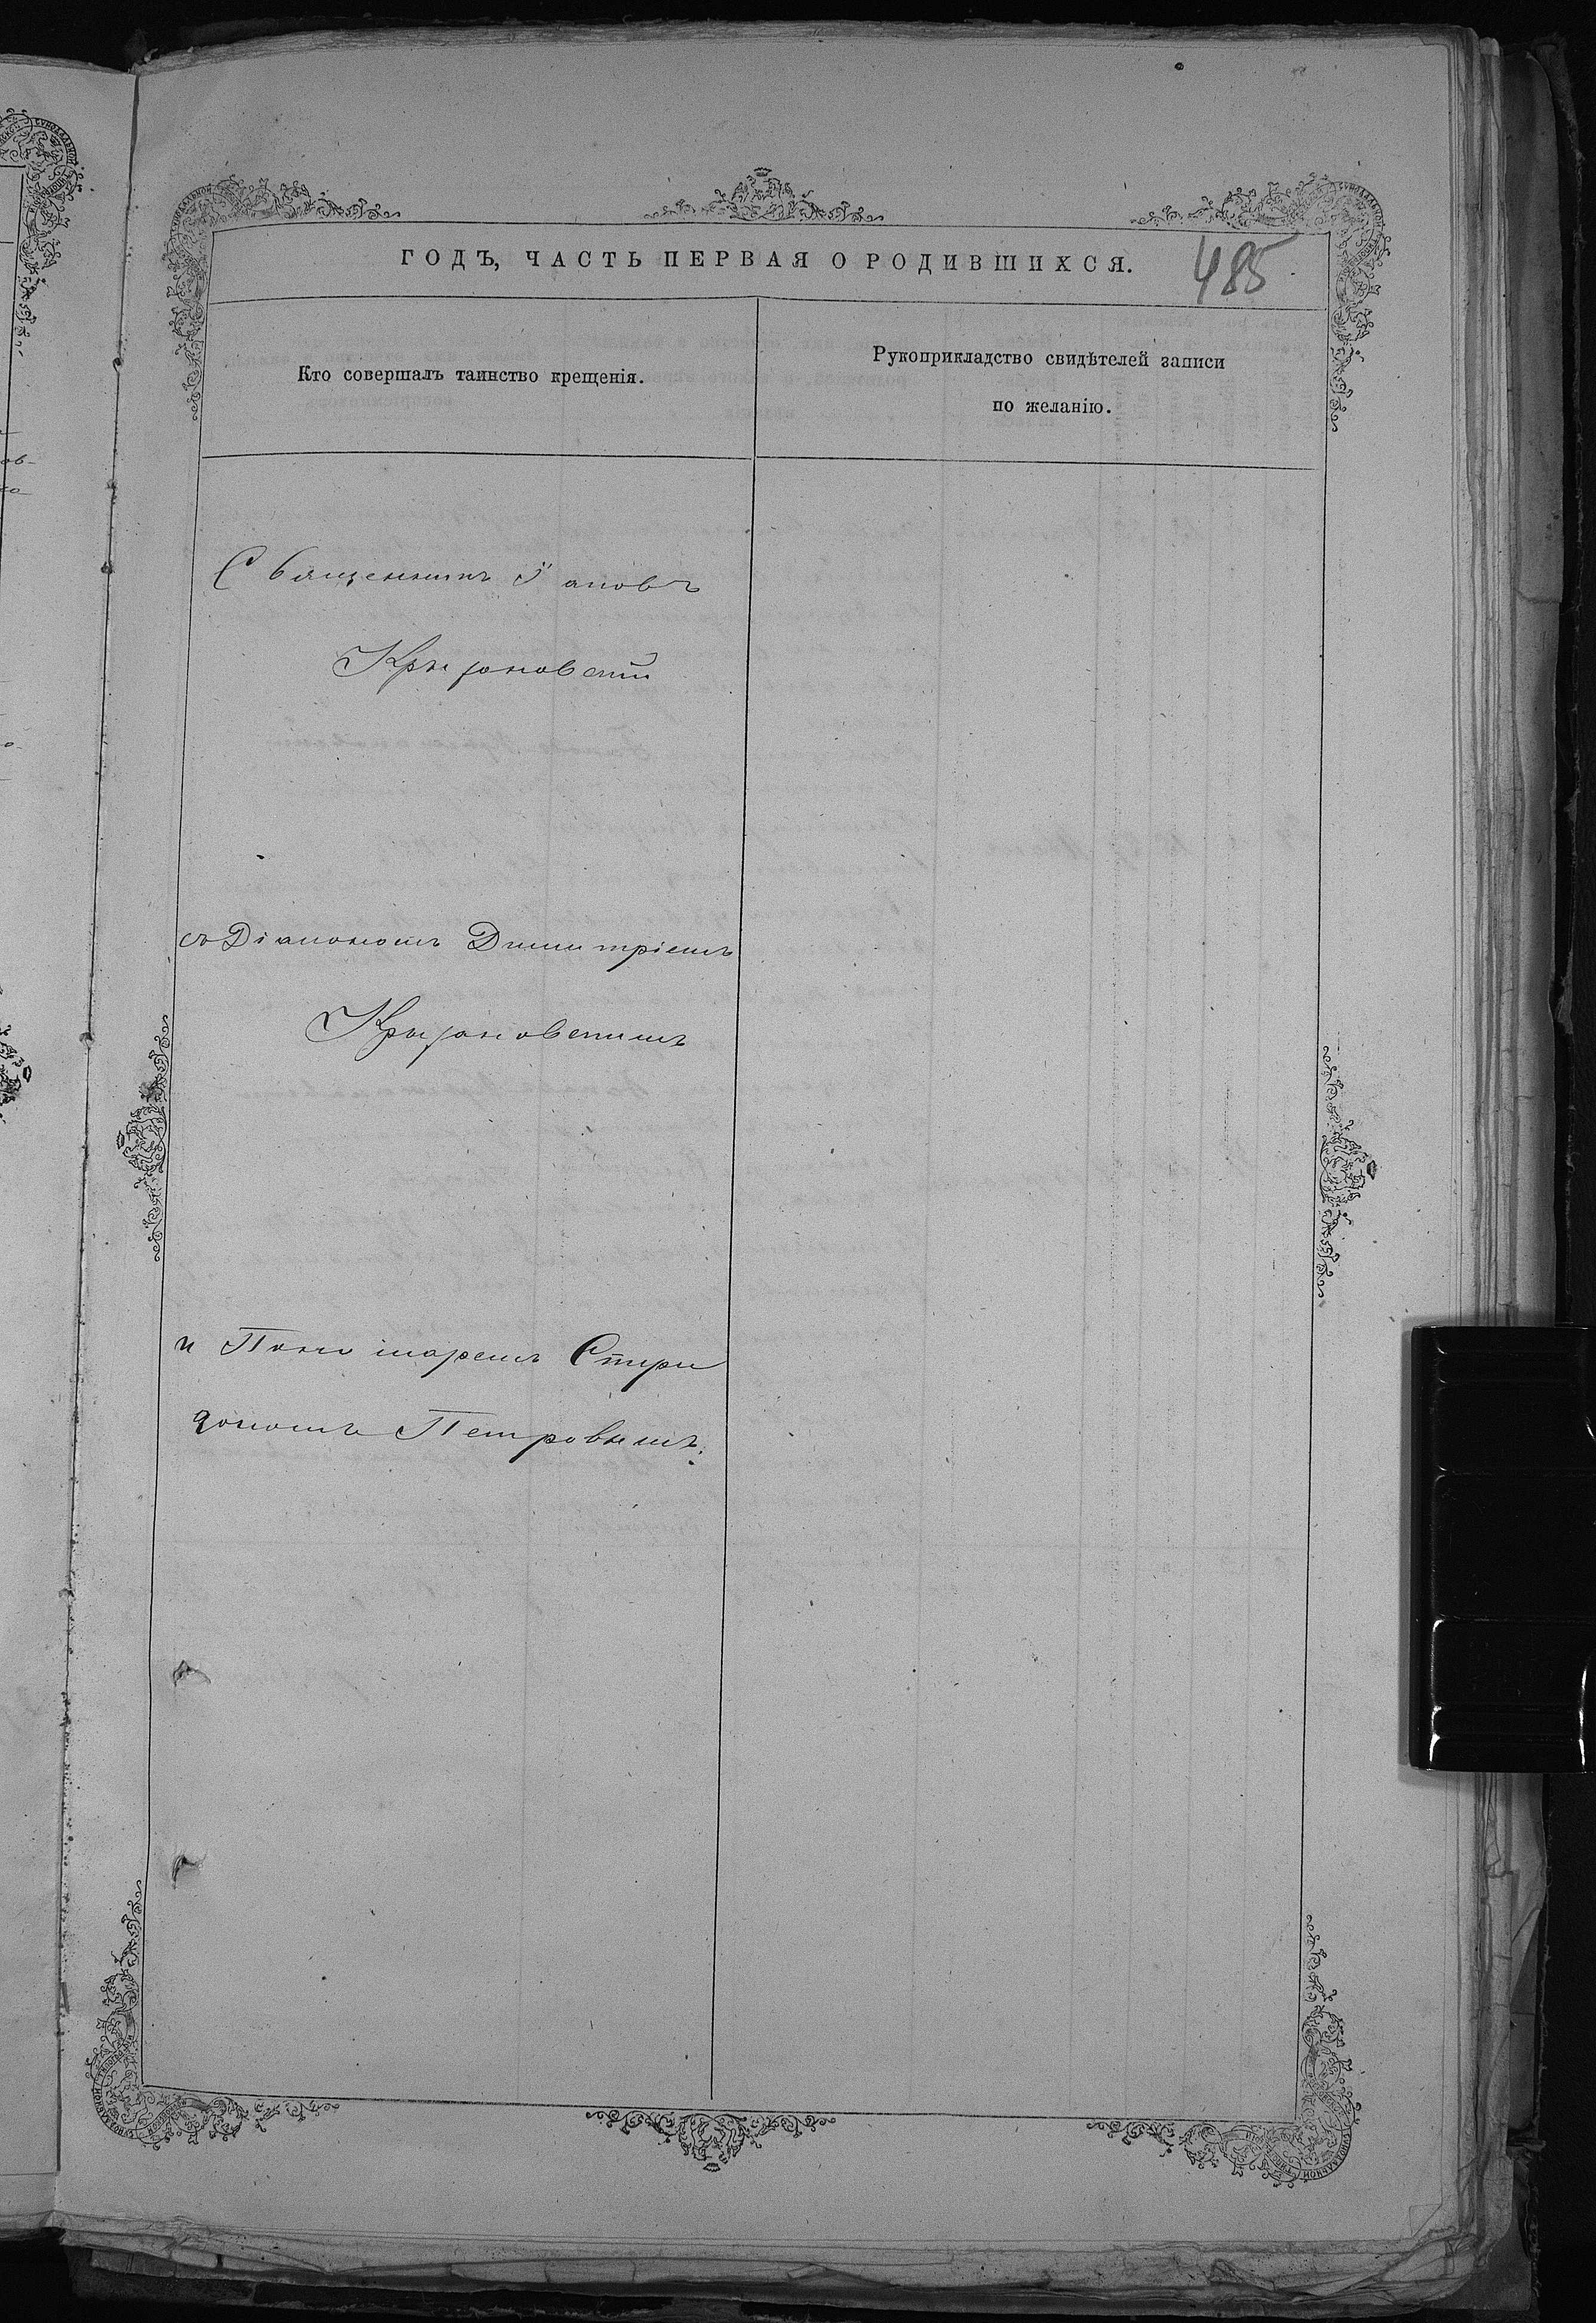 ГОДЪ, ЧАСТЬ ПЕРВАЯ О РОДИВШИХСЯ.
485
Кто совершалъ таинство крещенія.
Рукоприкладство свидѣтелей записи
по желанію.
Священникъ Іаковъ
Крыжановскій
съ Діакономъ Димитріемъ
Крыжановскимъ
и Пономаремъ Спири
дономъ Петровымъ.